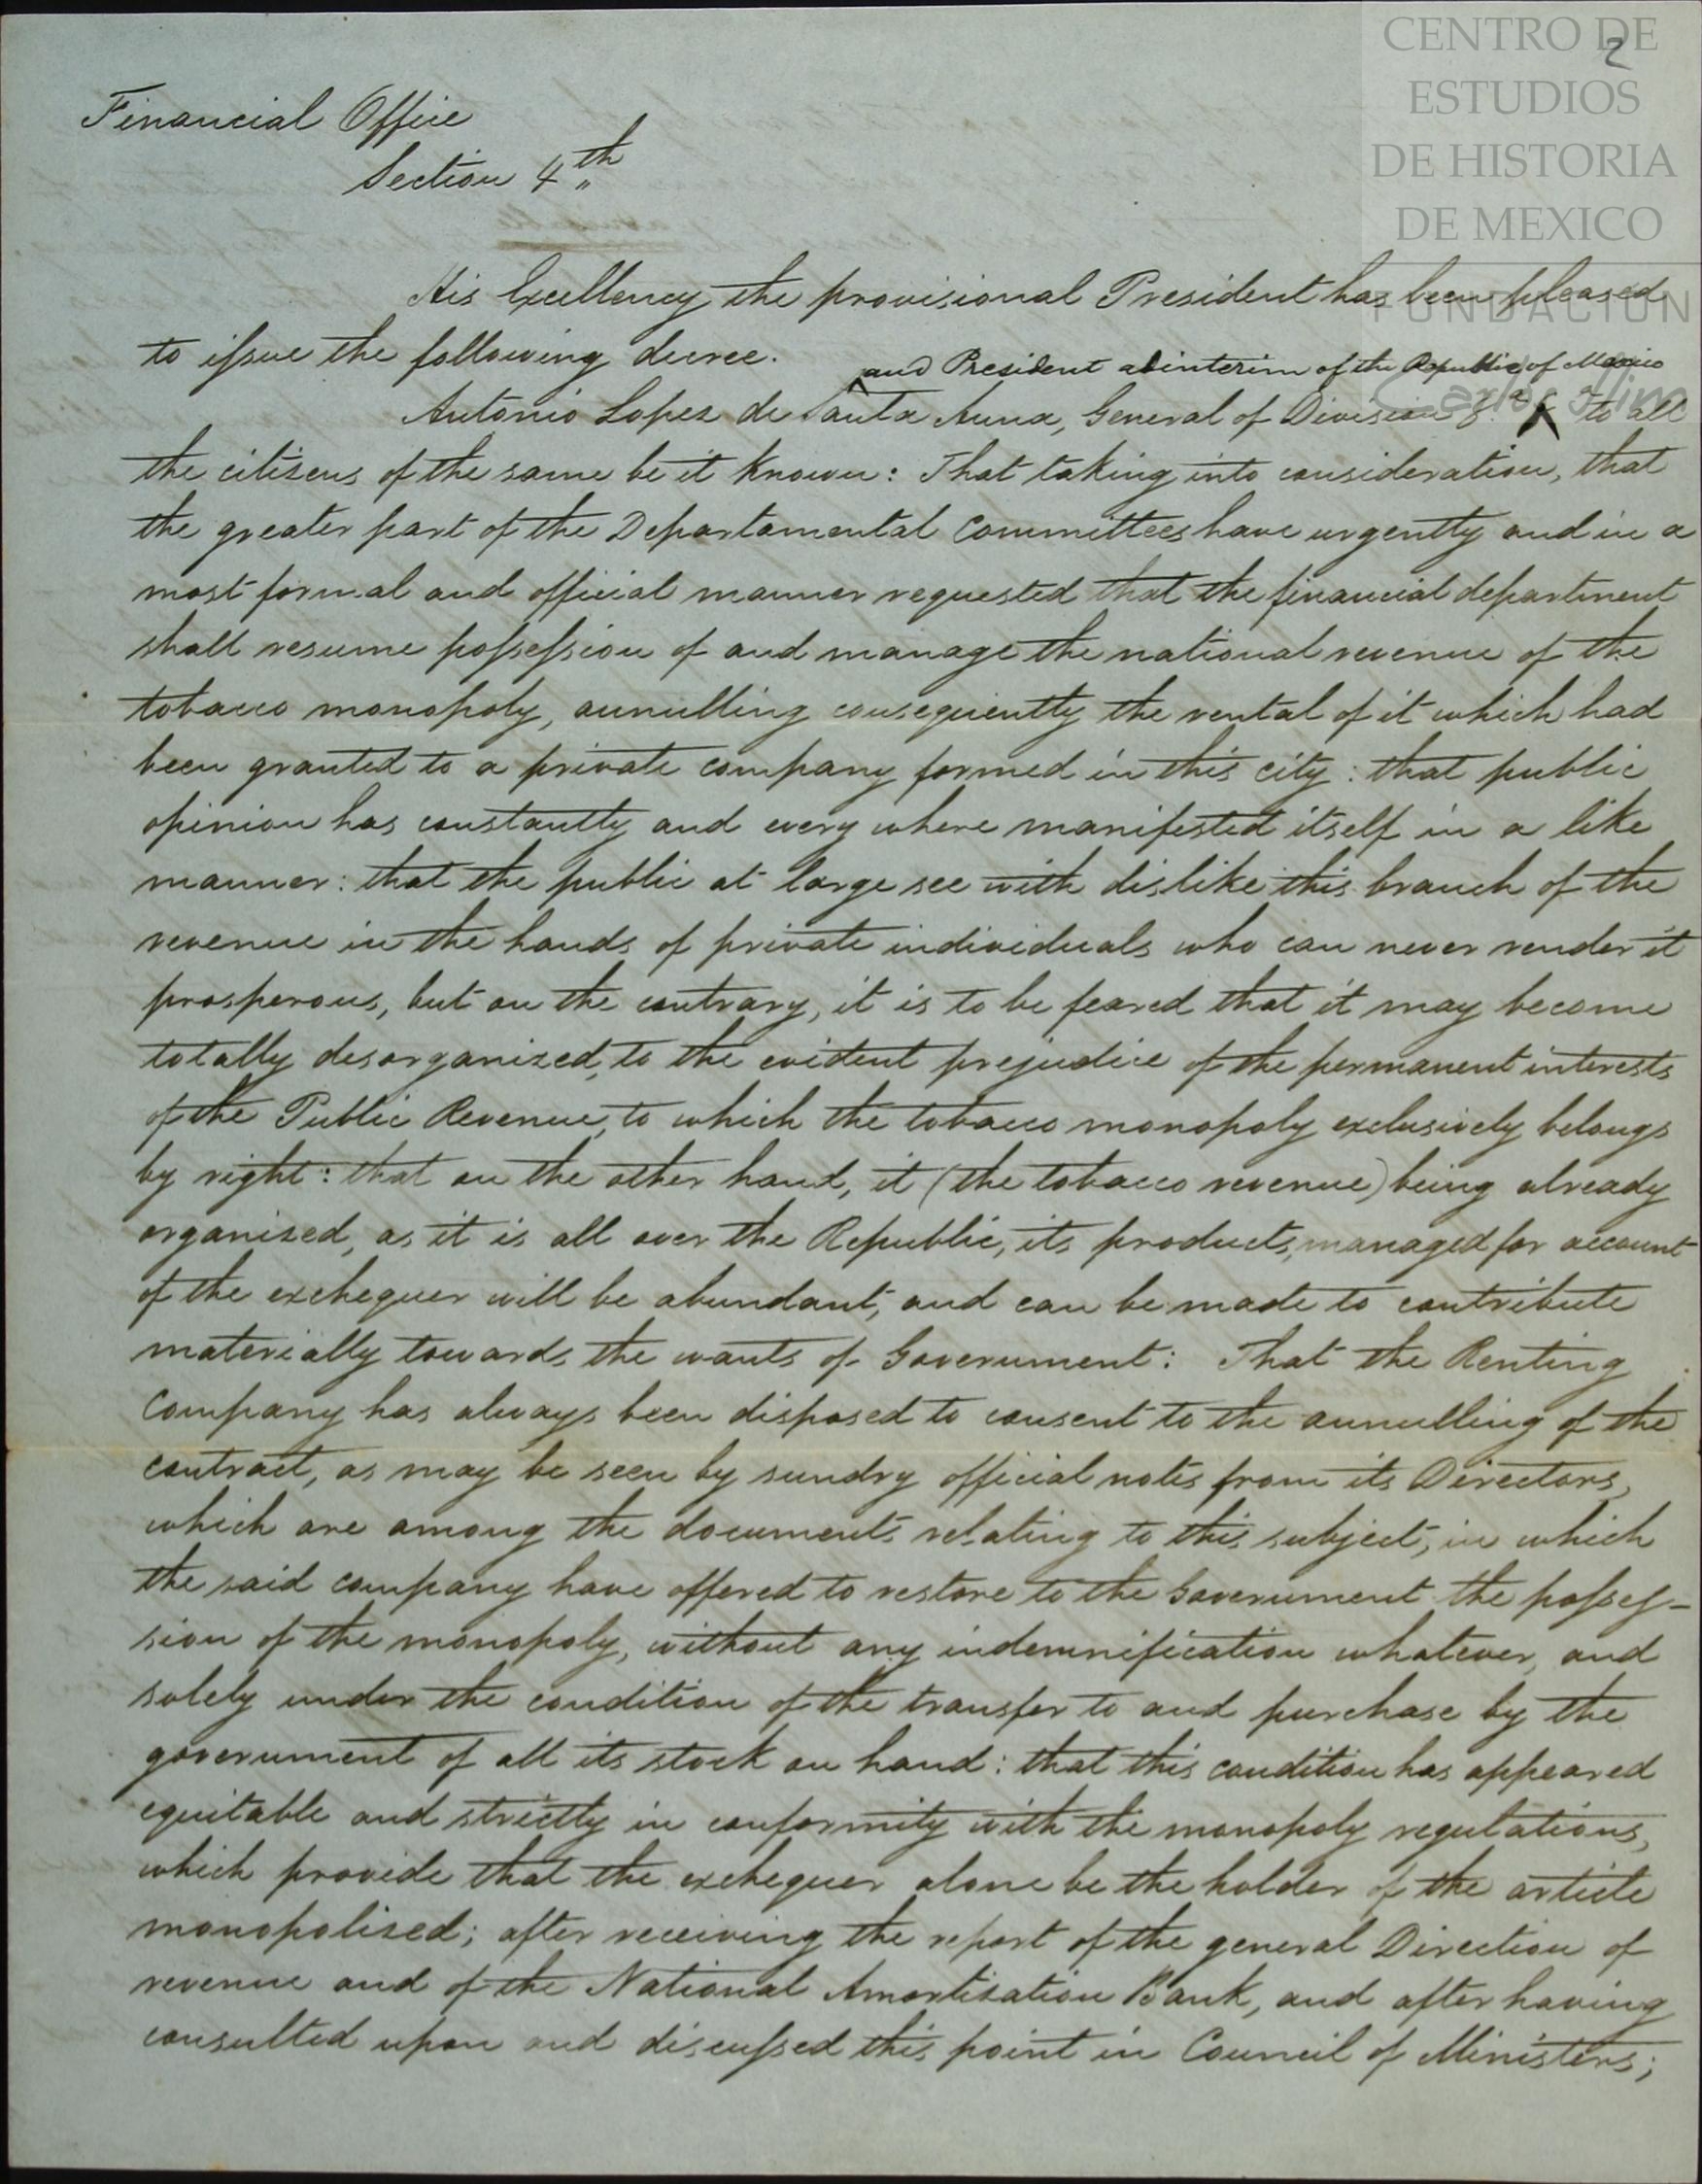 CENTRO DE
ESTUDIOS
DE HISTORIA
DE MEXICO
FUNDACIÓN
Carlos Slim
2
Financial Office
Section 4th
His Excellency the provisional President has been pleased
to issue the following decree.
and President ad interim of the Republic of Mexico
Antonio Lopez de Santa Anna, General of Division &a to all
the citizens of the same be it known: That taking into consideration, that
the greater part of the Departamental Committees have urgently and in a
most formal and official manner requested that the financial department
shall resume possession of and manage the national revenue of the
tobacco monopoly, annulling consequently the rental of it which had
been granted to a private company formed in this city: that public
opinion has constantly and every where manifested itself in a like
manner: that the public at large see with dislike this branch of the
revenue in the hands of private individuals who can never render it
prosperous, but on the contrary, it is to be feared that it may become
totally desorganized, to the evident prejudice of the permanent interests
of the Public Revenue, to which the tobacco monopoly exclusively belongs
by right: that on the other hand, it (the tobacco revenue) being already
organized, as it is all over the Republic, its products, managed for account
of the exchequer will be abundant, and can be made to contribute
materially towards the wants of Government: That the Renting
Company has always been disposed to consent to the annulling of the
contract, as may be seen by sundry official notes from its Directors,
which are among the documents relating to this subject, in which
the said company have offered to restore to the Government the posses-
sion of the monopoly, without any indemnification whatever, and
solely under the condition of the transfer to and purchase by the
government of all its stock on hand: that this condition has appeared
equitable and strictly in conformity with the monopoly regulations,
which provide that the exchequer alone be the holder of the article
monopolized; after receiving the report of the general Direction of
revenue and of the National Amortization Bank, and after having
consulted upon and discussed this point in Council of Ministers;